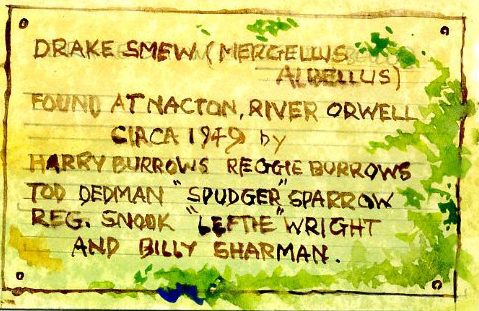 DRAKE SMEW (MERGELLUS
ALBELLUS)
FOUND AT NACTON, RIVER ORWELL
CIRCA 1949 by
HARRY BURROWS REGGIE BURROWS
TOD DEDMAN "SPUDGER" SPARROW
REG. SNOOK "LEFTIE" WRIGHT
AND BILLY SHARMAN.